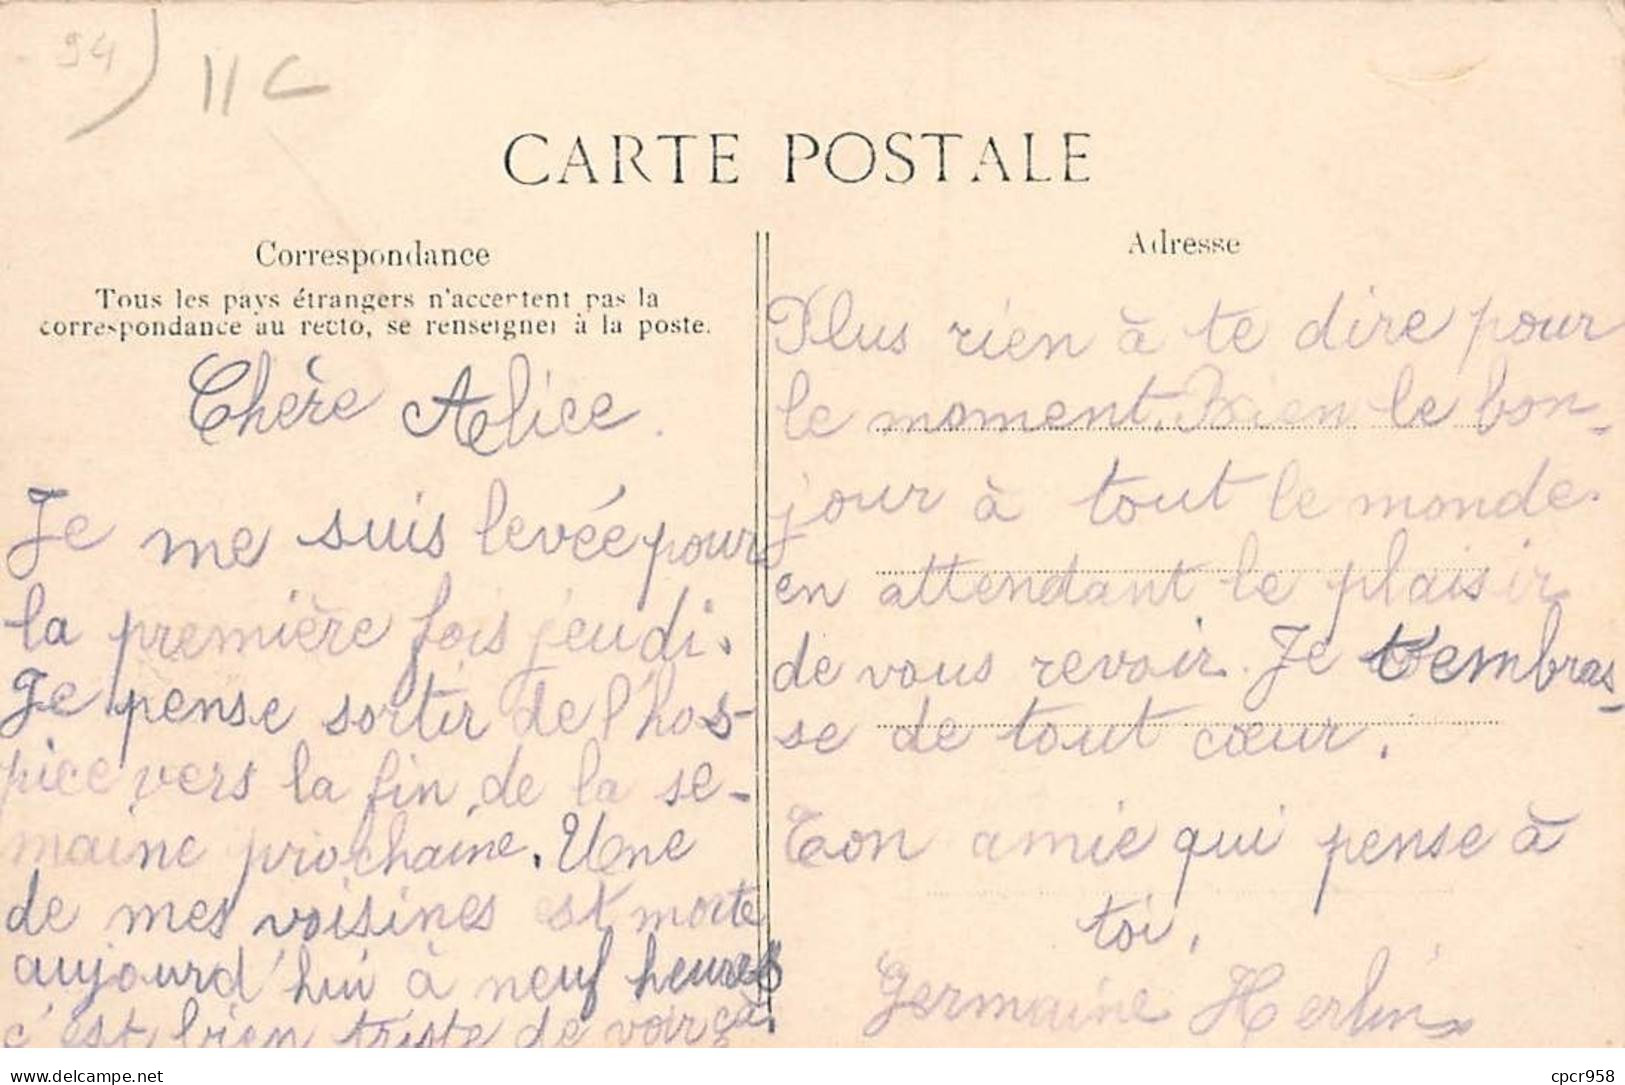 94
11C
CARTE POSTALE
Correspondance
Tous les pays étrangers n'acceptent pas la
correspondance au recto, se renseigner à la poste.
Chère Alice.
Je me suis levée pour
la première fois jeudi.
Je pense sortir de l'hos-
pice vers la fin de la se-
maine prochaine. Une
de mes voisines est morte
aujourd'hui à neuf heures
c'est bien triste de voir ça.
Adresse
Plus rien à te dire pour
le moment. Bien le bon-
jour à tout le monde.
en attendant le plaisir
de vous revoir. Je t'embras-
se de tout cœur.
Ton amie qui pense à
toi.
Germaine Herlin
delcampe.net
cpcr958